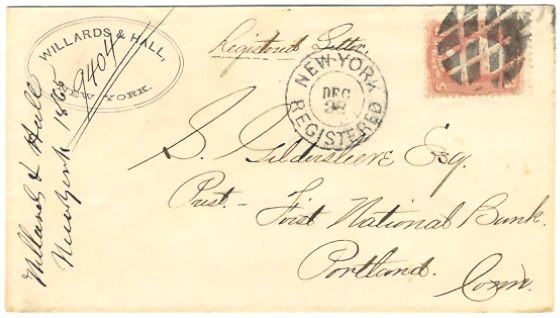 WILLARDS & HALL,
NEW YORK.
9404
Registered Letter,
NEW-YORK
DEC
REGISTERED
S. Gildersleeve Esq.
Prest - First National Bank.
Portland. Conn.
Willards & Hall
New York 1865